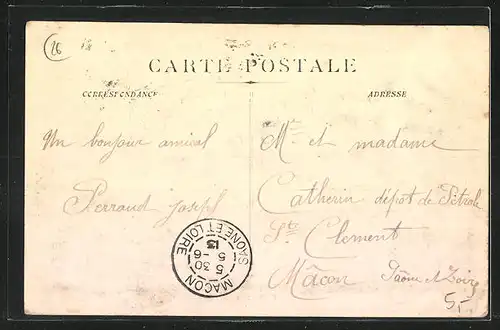 26
CARTE POSTALE
CORRESPONDANCE
ADRESSE
Un bonjour amical
Perraud joseph
Mr et madame
Catherin dépot de Pétrole
St Clement
Mâcon Saône et Loire
MACON
5 30
5-6
13
SAONE ET LOIRE